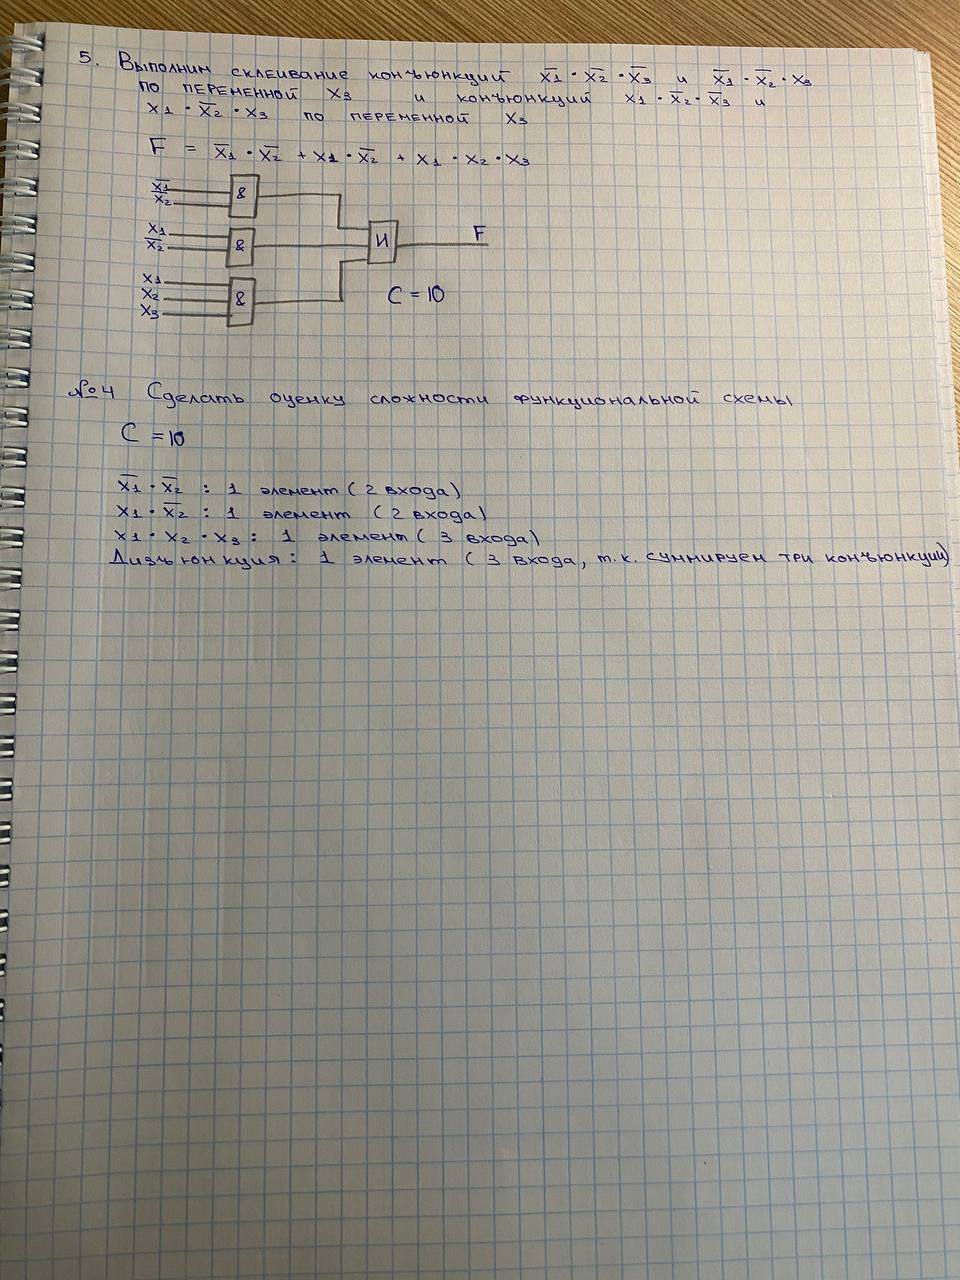 5. Выполним склеивание конъюнкций x̅1 · x̅2 · x̅3 и x̅1 · x̅2 · x3
по переменной x3 и конъюнкций x1 · x̅2 · x̅3 и
x1 · x̅2 · x3 по переменной x3
F = x̅1 · x̅2 + x1 · x̅2 + x1 · x2 · x3
x̅1
x̅2
&
x1
x̅2
&
И
F
x1
x2
x3
&
C = 10
№4 Сделать оценку сложности функциональной схемы
C = 10
x̅1 · x̅2 : 1 элемент (2 входа)
x1 · x̅2 : 1 элемент (2 входа)
x1 · x2 · x3 : 1 элемент (3 входа)
Дизъюнкция: 1 элемент (3 входа, т.к. суммируем три конъюнкции)